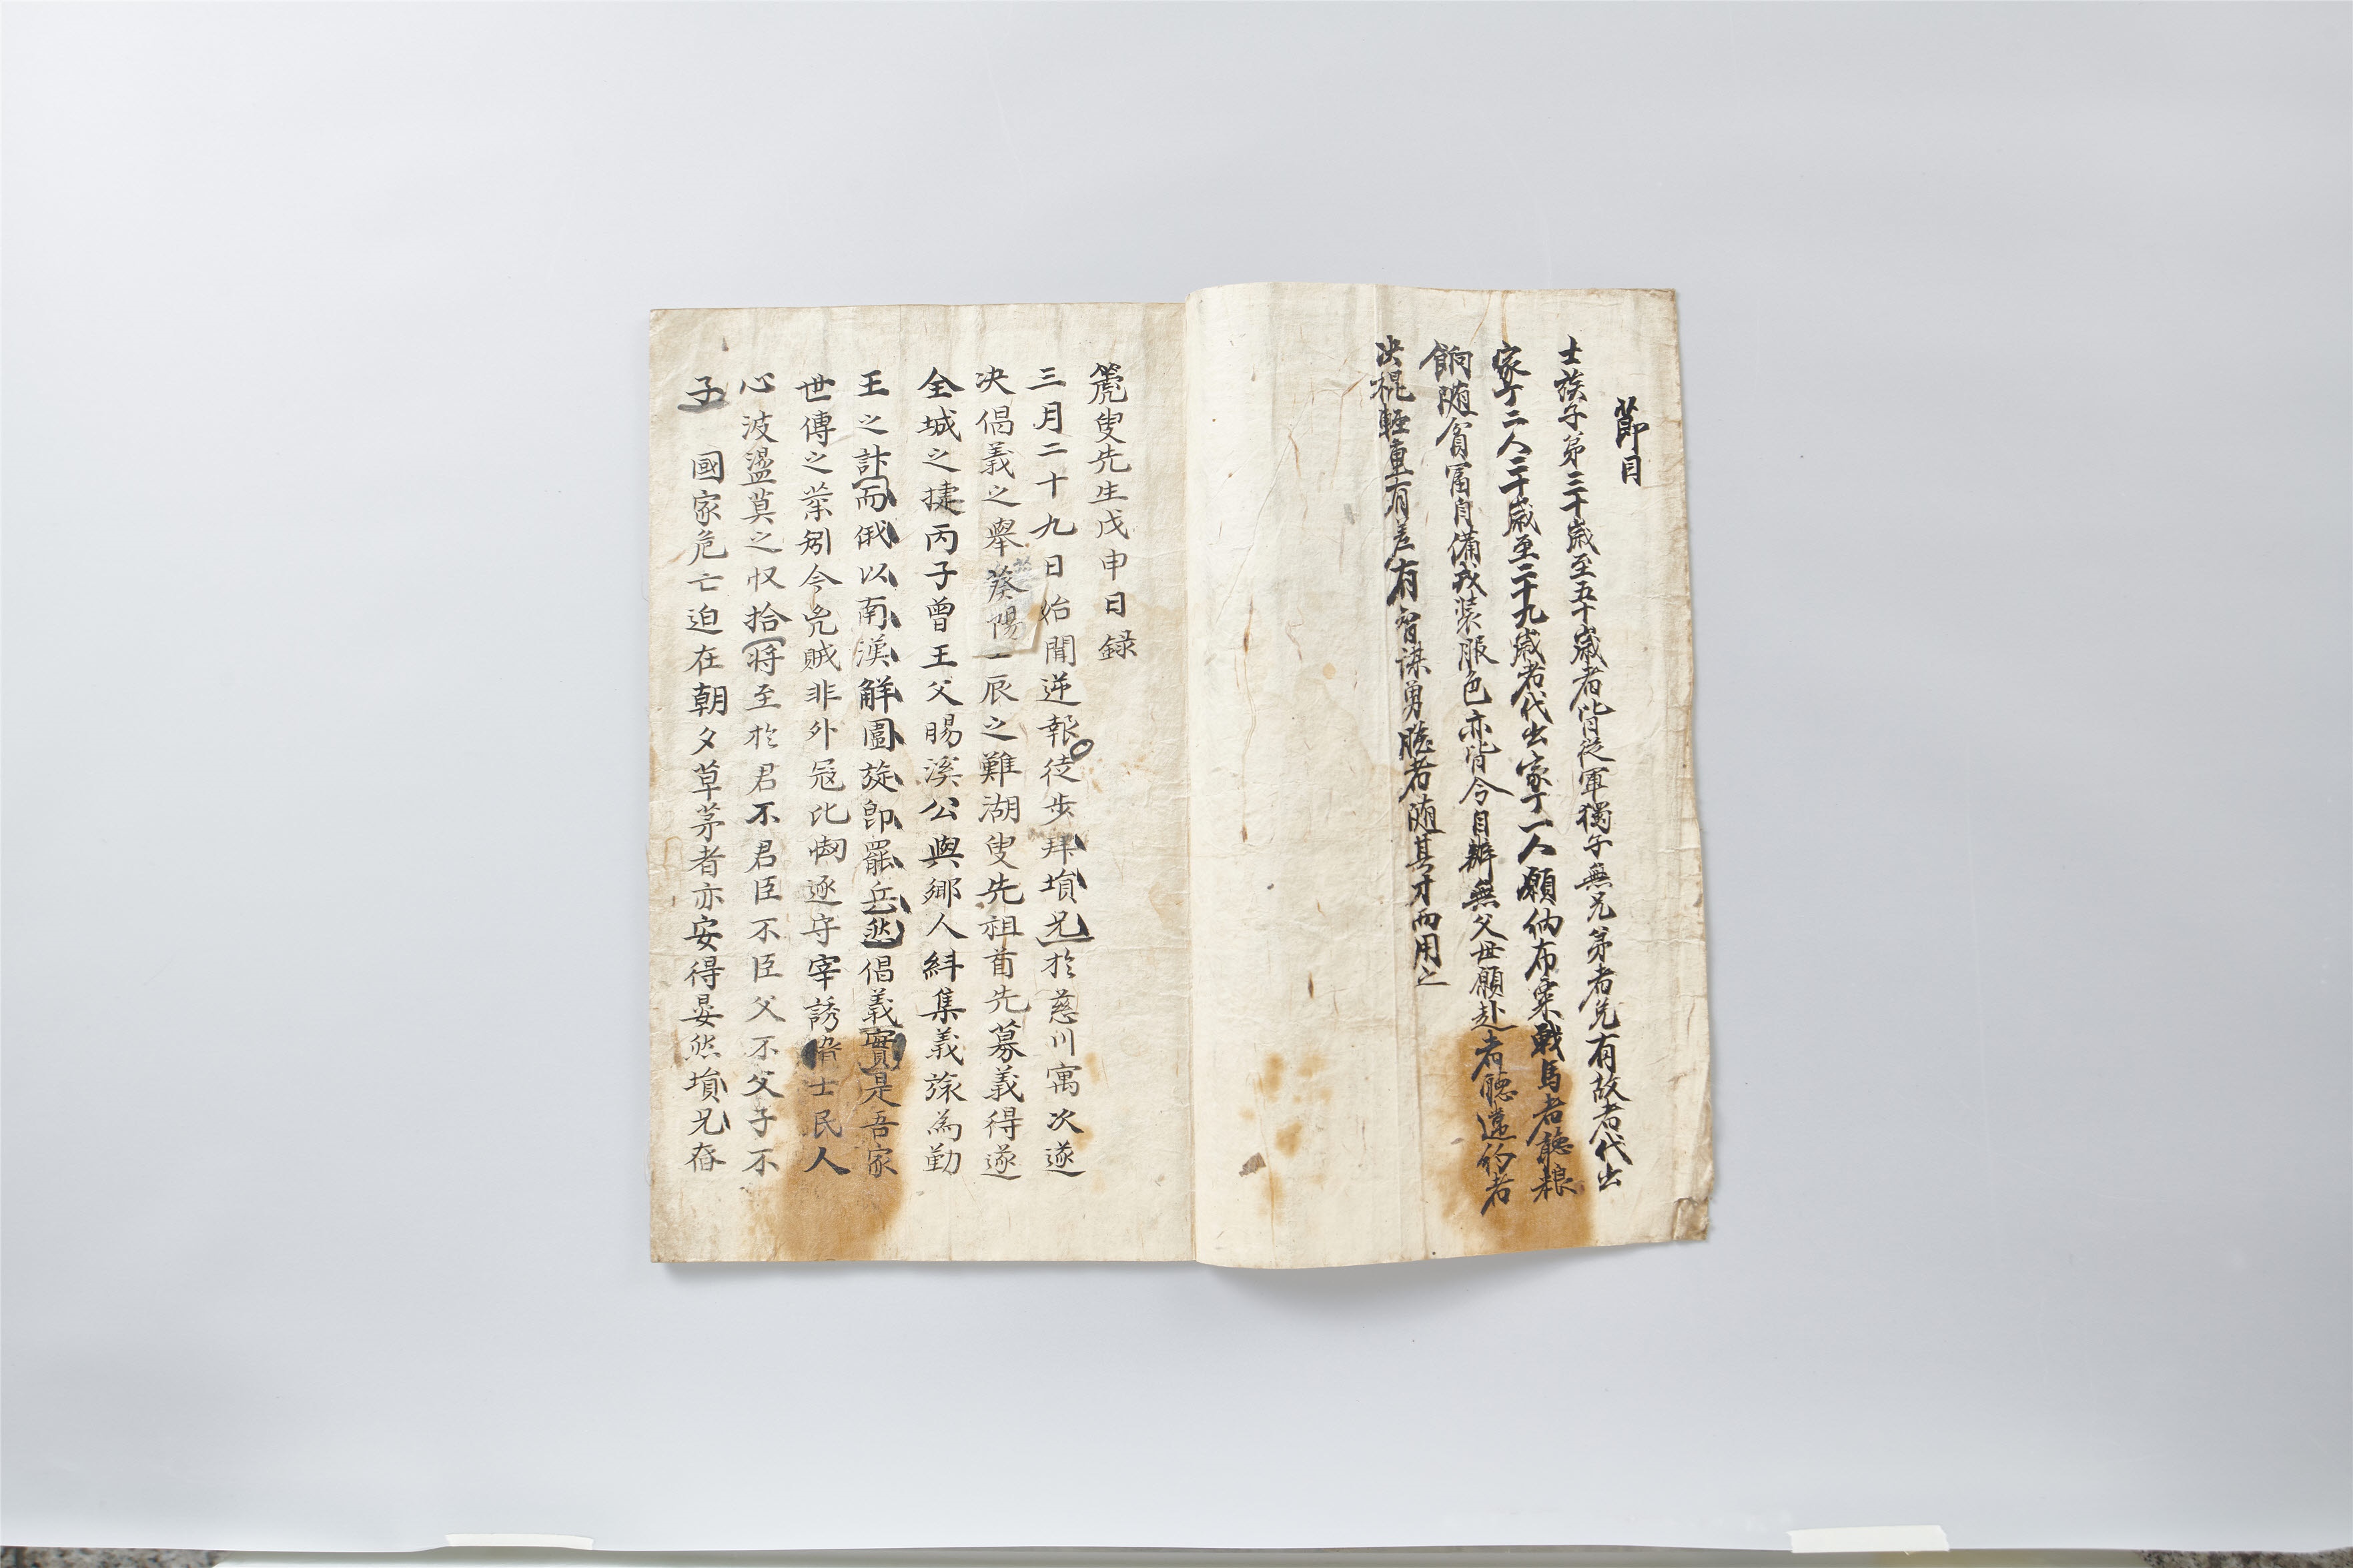 節目
士族子第三十歲至五十歲者皆從軍獨子無兄第者免有故者代出
家丁二人二十歲至二十九歲者代出家丁一人願納布粟戰馬者聽粮
餉随貧富自備戎装服色亦皆令自辦無父母願赴者聽違約者
决棍輕重有差有智謀勇膽者随其才而用之
篪叟先生戊申日録
三月二十九日始聞逆報徒步拜塤兄於慈川寓次遂
决倡義之舉葵陽一辰之難湖叟先祖首先募義得遂
全城之捷丙子曾王父賜溪公與鄉人糾集義旅為勤
王之計而俄以南漢解圍旋即罷兵然倡義實是吾家
世傳之業矧今兇賊非外冦比惘逐守宰誘脅士民人
心波盪莫之収拾將至於君不君臣不臣父不父子不
子 國家危亡迫在朝夕草茅者亦安得晏然塤兄奮